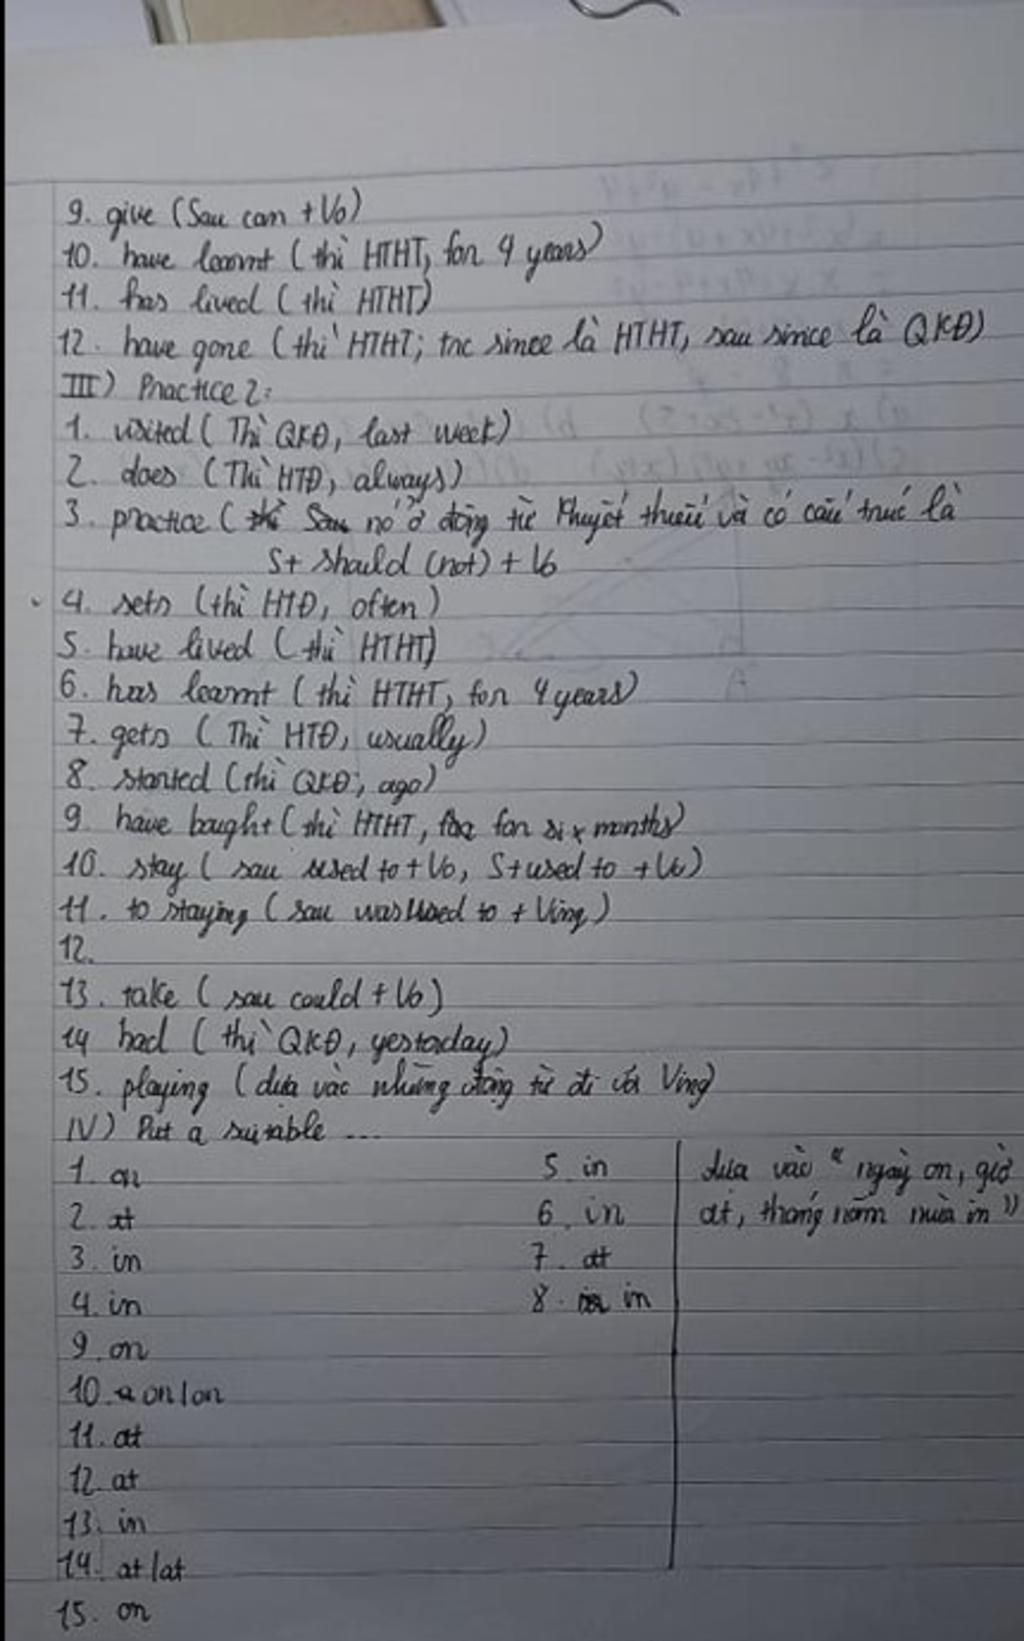 9. give (Sau can + V0)
10. have learnt (thì HTHT, for 4 years)
11. has lived (thì HTHT)
12. have gone (thì HTHT; trc since là HTHT, sau since là QKĐ)
III) Practice 2:
1. visited (Thì QKĐ, last week)
2. does (Thì HTĐ, always)
3. practice (Sau nó ở động từ khuyết thiếu và có cấu trúc là
S + should (not) + V0
4. sets (thì HTĐ, often)
5. have lived (thì HTHT)
6. has learnt (thì HTHT, for 4 years)
7. gets (Thì HTĐ, usually)
8. started (thì QKĐ, ago)
9. have bought (thì HTHT, for six months)
10. stay (sau used to + V0, S + used to + V0)
11. to staying (sau was used to + Ving)
12.
13. take (sau could + V0)
14 had (thì QKĐ, yesterday)
15. playing (dựa vào những động từ đi với Ving)
IV) Put a suitable ...
1. on
2. at
3. in
4. in
5. in
6. in
7. at
8. in
dựa vào "ngày on, giờ
at, tháng năm mùa in"
9. on
10. on/on
11. at
12. at
13. in
14. at/at
15. on